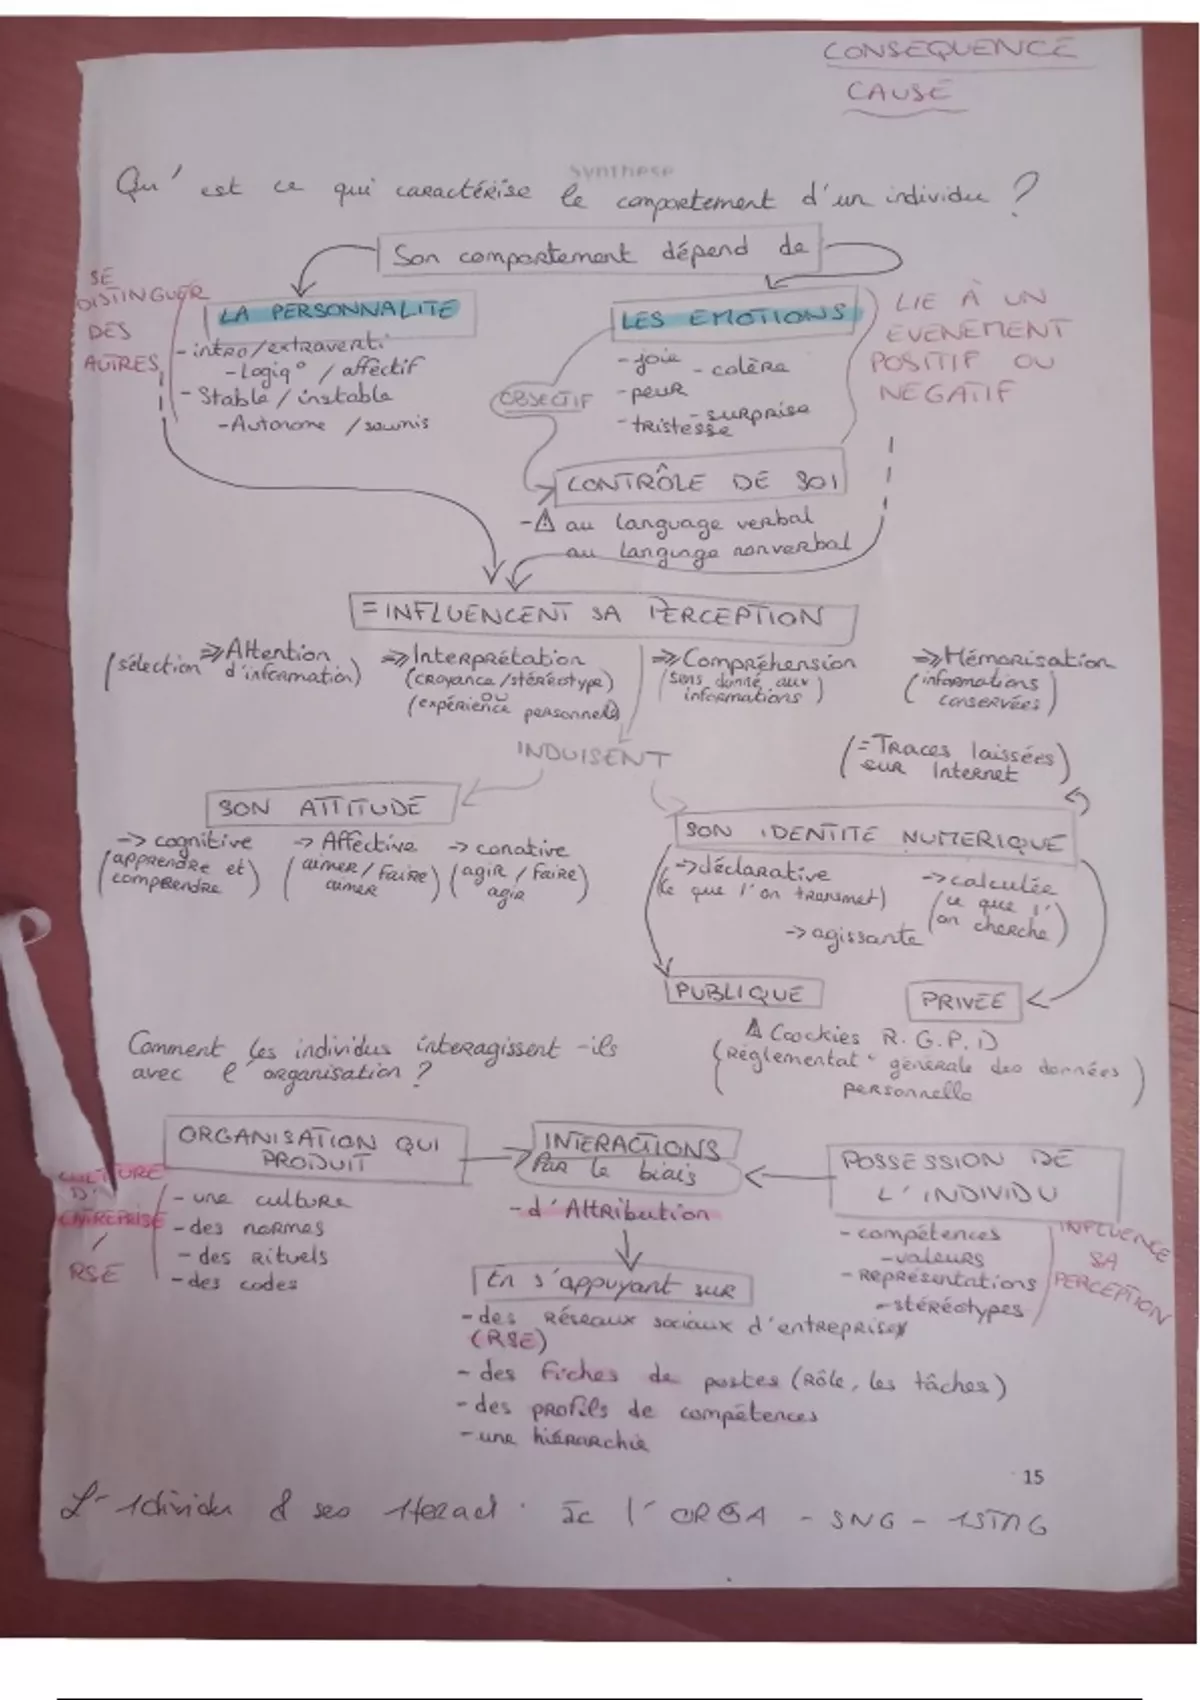 CONSEQUENCE
CAUSE
Synthèse
Qu'est ce qui caractérise le comportement d'un individu ?
Son comportement dépend de
SE
DISTINGUER
DES
AUTRES
LA PERSONNALITE
- intro/extraverti
- Logiq° / affectif
- Stable / instable
- Autonome / soumis
LES EMOTIONS
- joie - colère
- peur
- tristesse - surprise
LIE À UN
EVENEMENT
POSITIF OU
NEGATIF
OBJECTIF
CONTRÔLE DE SOI
- ⚠ au language verbal
au language nonverbal
= INFLUENCENT SA PERCEPTION
=> Attention
(sélection d'information)
=> Interprétation
(croyance/stéréotype)
ou
(expérience personnelle)
=> Compréhension
(sens donné aux
informations)
=> Mémorisation
(informations
conservées)
INDUISENT
(= Traces laissées
sur Internet)
SON ATTITUDE
-> cognitive
(apprendre et
comprendre)
-> Affective
(aimer/faire
aimer)
-> conative
(agir / faire
agir)
SON IDENTITE NUMERIQUE
-> déclarative
(ce que l'on transmet)
-> calculée
(ce que l'
on cherche)
-> agissante
PUBLIQUE
PRIVEE
⚠ Coockies R.G.P.D
(Réglementat° générale des données
personnelle)
Comment les individus interagissent-ils
avec l'organisation ?
ORGANISATION QUI
PRODUIT
CULTURE
D'
ENTREPRISE
/
RSE
- une culture
- des normes
- des rituels
- des codes
INTERACTIONS
Par le biais
- d'Attribution
POSSESSION DE
L'INDIVIDU
- compétences
- valeurs
- Représentations
- stéréotypes
INFLUENCE
SA
PERCEPTION
En s'appuyant sur
- des Réseaux sociaux d'entreprise
(RSE)
- des Fiches de postes (Rôle, les tâches)
- des profils de compétences
- une hiérarchie
15
& ses
l'ORGA - SNG - 1STMG